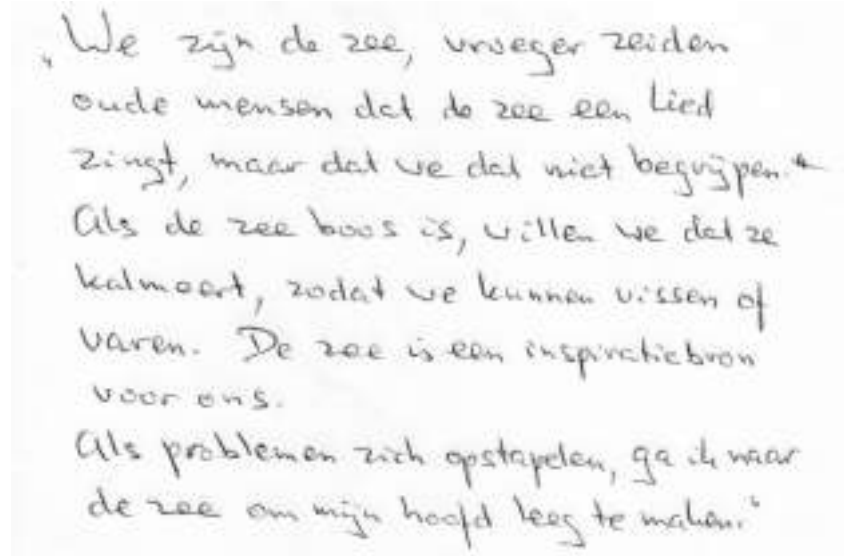 „We zijn de zee, vroeger zeiden
oude mensen dat de zee een Lied
zingt, maar dat we dat niet begrijpen."
Als de zee boos is, willen we dat ze
kalmeert, zodat we kunnen vissen of
varen. De zee is een inspiratiebron
voor ons.
Als problemen zich opstapelen, ga ik naar
de zee om mijn hoofd leeg te maken."